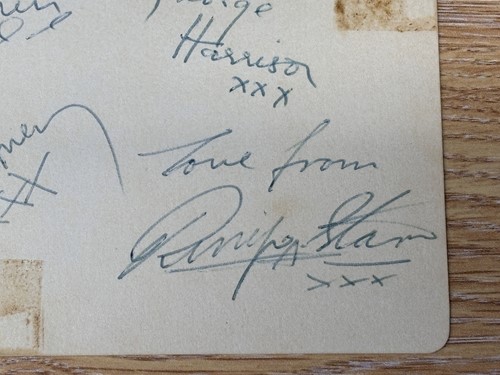 George
Harrison
xxx
xx
love from
Ringo Starr
xxx